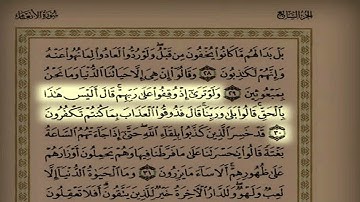 الجزء السابع سورة الأنعام
بَلْ بَدَا لَهُم مَّا كَانُوا۟ يُخْفُونَ مِن قَبْلُ ۖ وَلَوْ رُدُّوا۟ لَعَادُوا۟ لِمَا نُهُوا۟ عَنْهُ
وَإِنَّهُمْ لَكَـٰذِبُونَ ٢٨ وَقَالُوٓا۟ إِنْ هِىَ إِلَّا حَيَاتُنَا ٱلدُّنْيَا وَمَا نَحْنُ
بِمَبْعُوثِينَ ٢٩ وَلَوْ تَرَىٰٓ إِذْ وُقِفُوا۟ عَلَىٰ رَبِّهِمْ ۚ قَالَ أَلَيْسَ هَـٰذَا
بِٱلْحَقِّ ۚ قَالُوا۟ بَلَىٰ وَرَبِّنَا ۚ قَالَ فَذُوقُوا۟ ٱلْعَذَابَ بِمَا كُنتُمْ تَكْفُرُونَ
٣٠ قَدْ خَسِرَ ٱلَّذِينَ كَذَّبُوا۟ بِلِقَآءِ ٱللَّهِ ۖ حَتَّىٰٓ إِذَا جَآءَتْهُمُ ٱلسَّاعَةُ
بَغْتَةً قَالُوا۟ يَـٰحَسْرَتَنَا عَلَىٰ مَا فَرَّطْنَا فِيهَا وَهُمْ يَحْمِلُونَ أَوْزَارَهُمْ
عَلَىٰ ظُهُورِهِمْ ۚ أَلَا سَآءَ مَا يَزِرُونَ ٣١ وَمَا ٱلْحَيَوٰةُ ٱلدُّنْيَآ إِلَّا
لَعِبٌ وَلَهْوٌ ۖ وَلَلدَّارُ ٱلْـَٔاخِرَةُ خَيْرٌ لِّلَّذِينَ يَتَّقُونَ ۗ أَفَلَا تَعْقِلُونَ